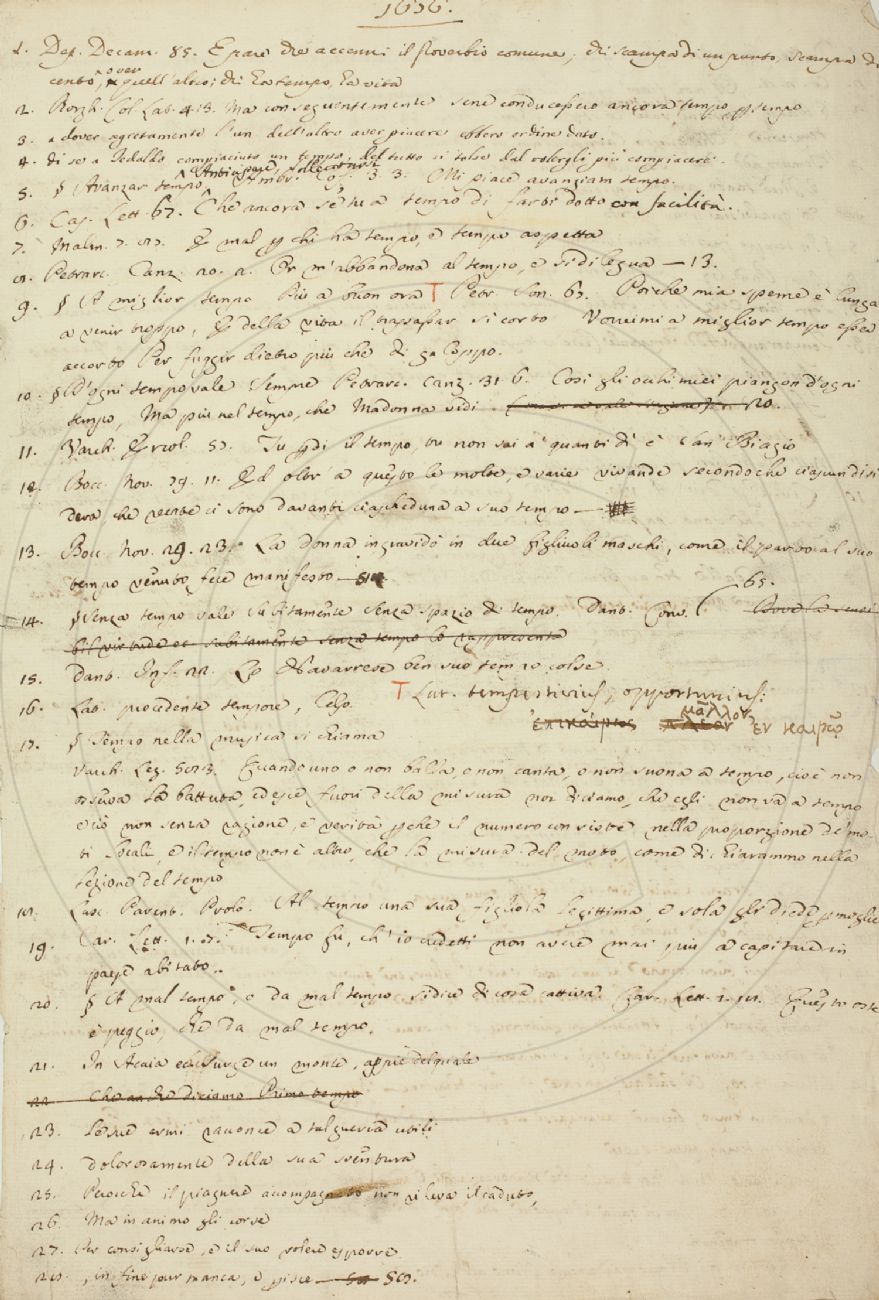 1656.
1. Dep. Decam. 85. E pare che accenni il proverbio comune, chi scampa di un punto, scampa di
cento, over quell'altro; chi ha tempo, ha vita
2. Borgh. Col. Lat. 413. Ma conseguentemente se ne conducessero ancora tempo p tempo
3. a dover segretamente l'un dell'altro aver piacere ebbero ordine dato.
4. di se a Tedaldo compiaciuto un tempo, del tutto si tolse dal volergli più compiacere.
5. § Avanzar tempo Anticipare, sollecitarsi Ambr. Cof. 3. 3. O mi piace avanziam tempo.
6. Cas. Lett. 67. Che ancora se' tu a tempo di farti dotto con facilità.
7. Malm. 7. 87. E mal p chi ha tempo, e tempo aspetta
8. Petrarc. Canz. 20. 2. Or m'abbandona al tempo, e si dilegua — 13.
9. § A miglior tempo Più a buon ora T Petr. Son. 67. Poiche mia speme è lunga
a venir troppo, E della vita il trapassar sì corto Vorreimi a miglior tempo esser
accorto Per fuggir dietro più che di galoppo.
10. § D'ogni tempo vale Sempre Petrarc. Canz. 31 6. Così gli occhi miei piangon d'ogni
tempo, Ma più nel tempo, che Madonna vidi 20.
11. Varch. Ercol. 57. Tu pdi il tempo, tu non sai a' quanti dì è San Biagio
12. Bocc. Nov. 79. 11. Ed oltr' a questo le molte, e varie vivande secondoche ciascun disi
dera, che recate ci sono davanti ciascheduna a suo tempo —
13. Bocc. Nov. 29. 23. La donna ingravidò in due figliuoli maschi, come il parto al suo
tempo venuto fece manifesto — 14
14. § Senza tempo vale Subitamente Senza spazio di tempo. Dant. Conv. 65.
bil virtude et subitamente senza tempo lo rappresenta
15. Dant. Inf. 22. Lo Navarrese ben suo tempo colse
16. Lat. procedente tempore, Cels. T Lat. tempestivius, opportunius:
ἐπικαίριος πλέον μᾶλλον ἐν καιρῷ
17. § Tempo nella musica si chiama
Varch. Lez. 503. Quando uno o non balla, o non canta, o non suona a tempo, cioè non
osserva la battuta, ed esce fuori della misura noi diciamo, che egli non va a tempo
e ciò non senza ragione, e verità pche il numero consiste nella proporzione de' mo
ti locali, e il tempo non è altro, che la misura del moto, come dichiarammo nella
lezione del tempo
18. Lasc. Parent. Prolo. Al tempo una sua figliola legittima, e sola gli diede p moglie
19. Car. Lett. 1. 7. Tempo fu, ch'io credetti non avere mai più a capitare in
paese abitato..
20. § A mal tempo, o da mal tempo si dice di cosa cattiva. Car. Lett. 1. 18. Questo oste
è peggio, che da mal tempo.
21. In Acaia ecc. surge un monte, appiè del quale
22. Che anche diciamo Primo tempo
23. Le sue armi racconce a tal guerra utili
24. dolorosamente della sua sventura
25. Perocche il piagnere acompagnato non rileva il caduto,
26. Ma in animo gli corse
27. Per consigliarsi, e il suo volere esporre
28. , in fine pur manca, e pisce — 58.